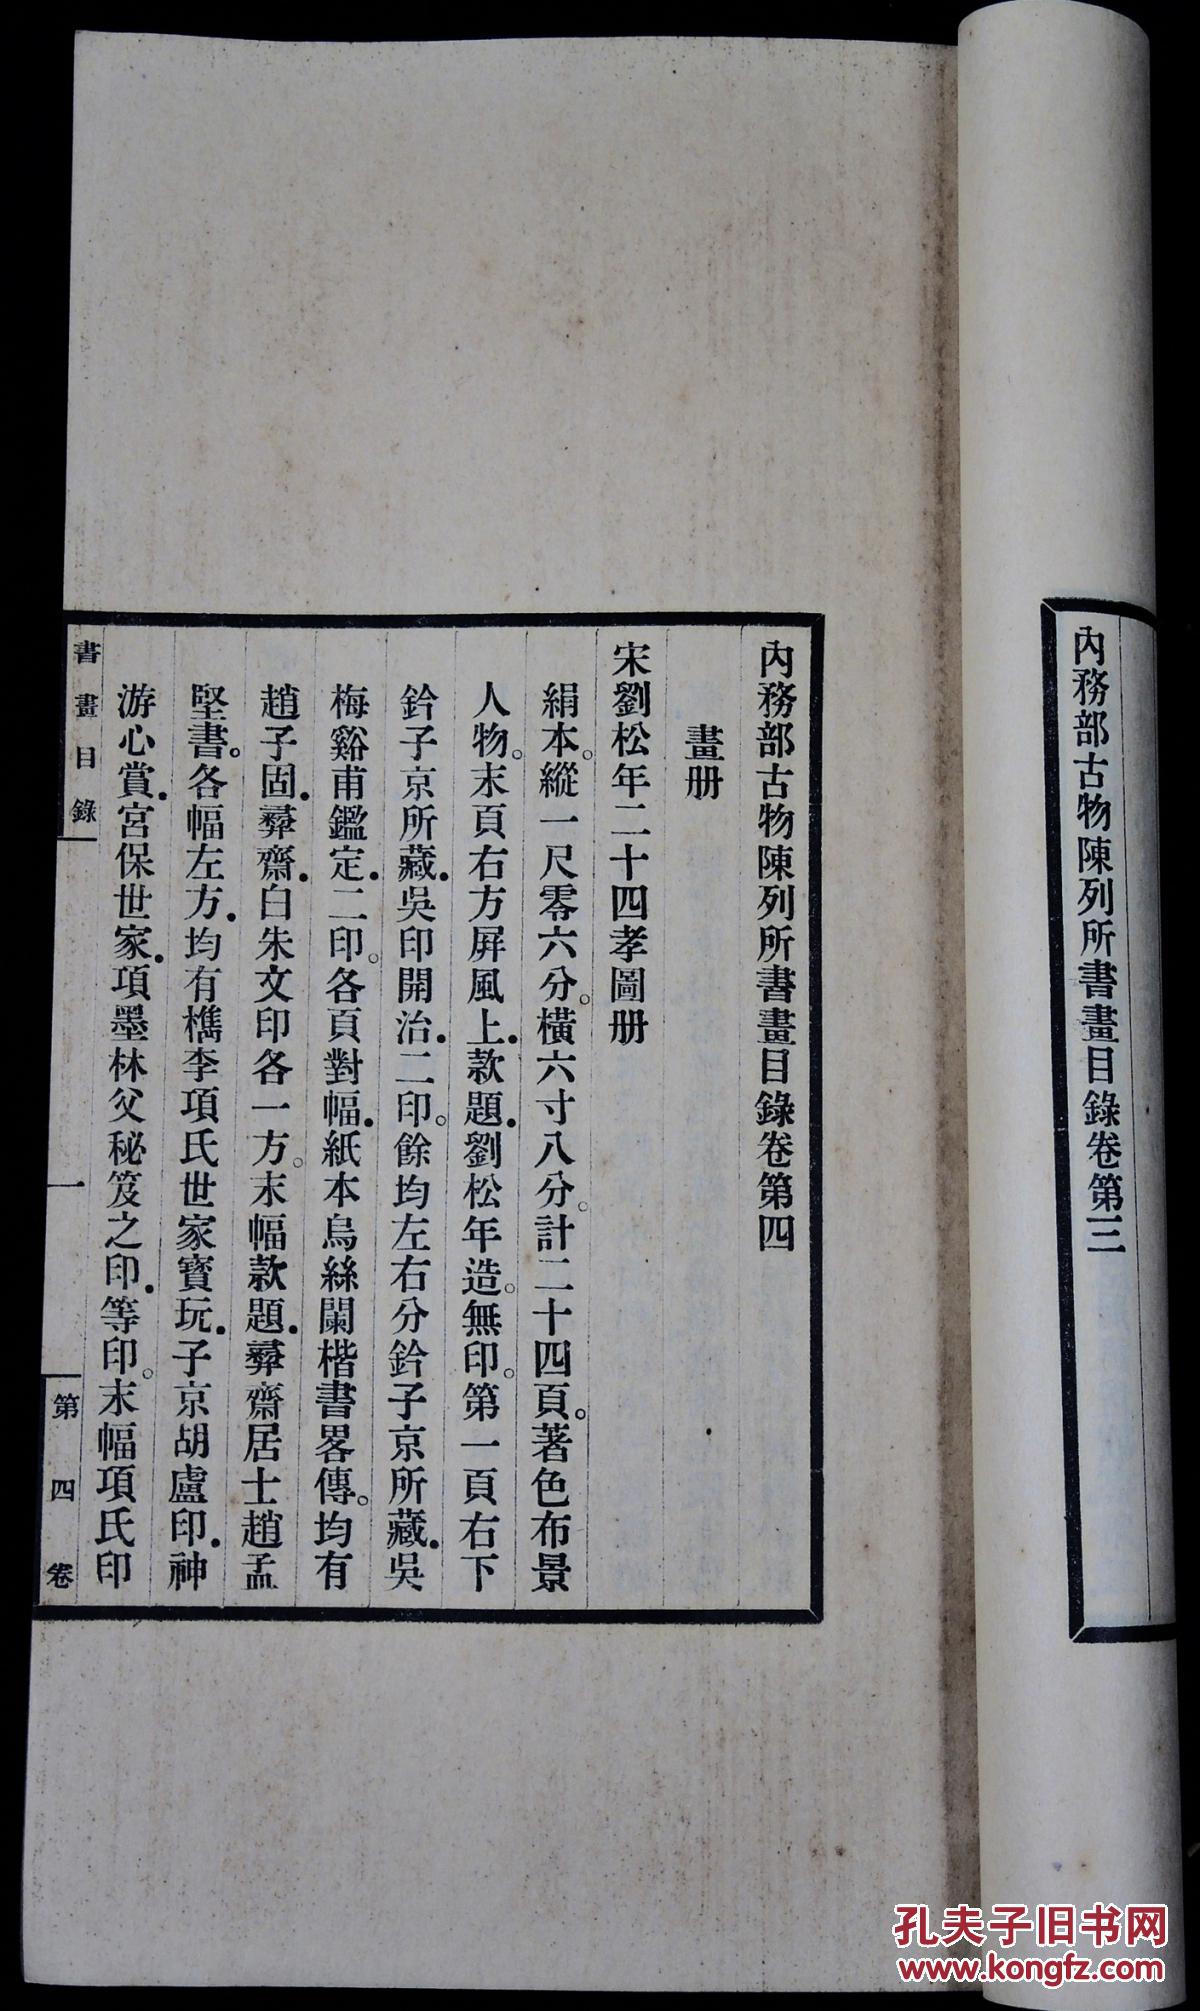 內務部古物陳列所書畫目錄卷第三
內務部古物陳列所書畫目錄卷第四
畫册
宋劉松年二十四孝圖册
絹本。縱一尺零六分。橫六寸八分。計二十四頁。著色布景
人物。末頁右方屏風上.款題.劉松年造。無印。第一頁右下
鈐子京所藏.吳印開治.二印。餘均左右分鈐子京所藏.吳
梅谿甫鑑定.二印。各頁對幅.紙本烏絲闌楷書畧傳。均有
趙子固.彝齋.白朱文印各一方。末幅款題.彝齋居士趙孟
堅書。各幅左方.均有檇李項氏世家寶玩.子京胡盧印.神
游心賞.宮保世家.項墨林父秘笈之印.等印。末幅項氏印
書畫目錄
一
第四卷
孔夫子旧书网
www.kongfz.com